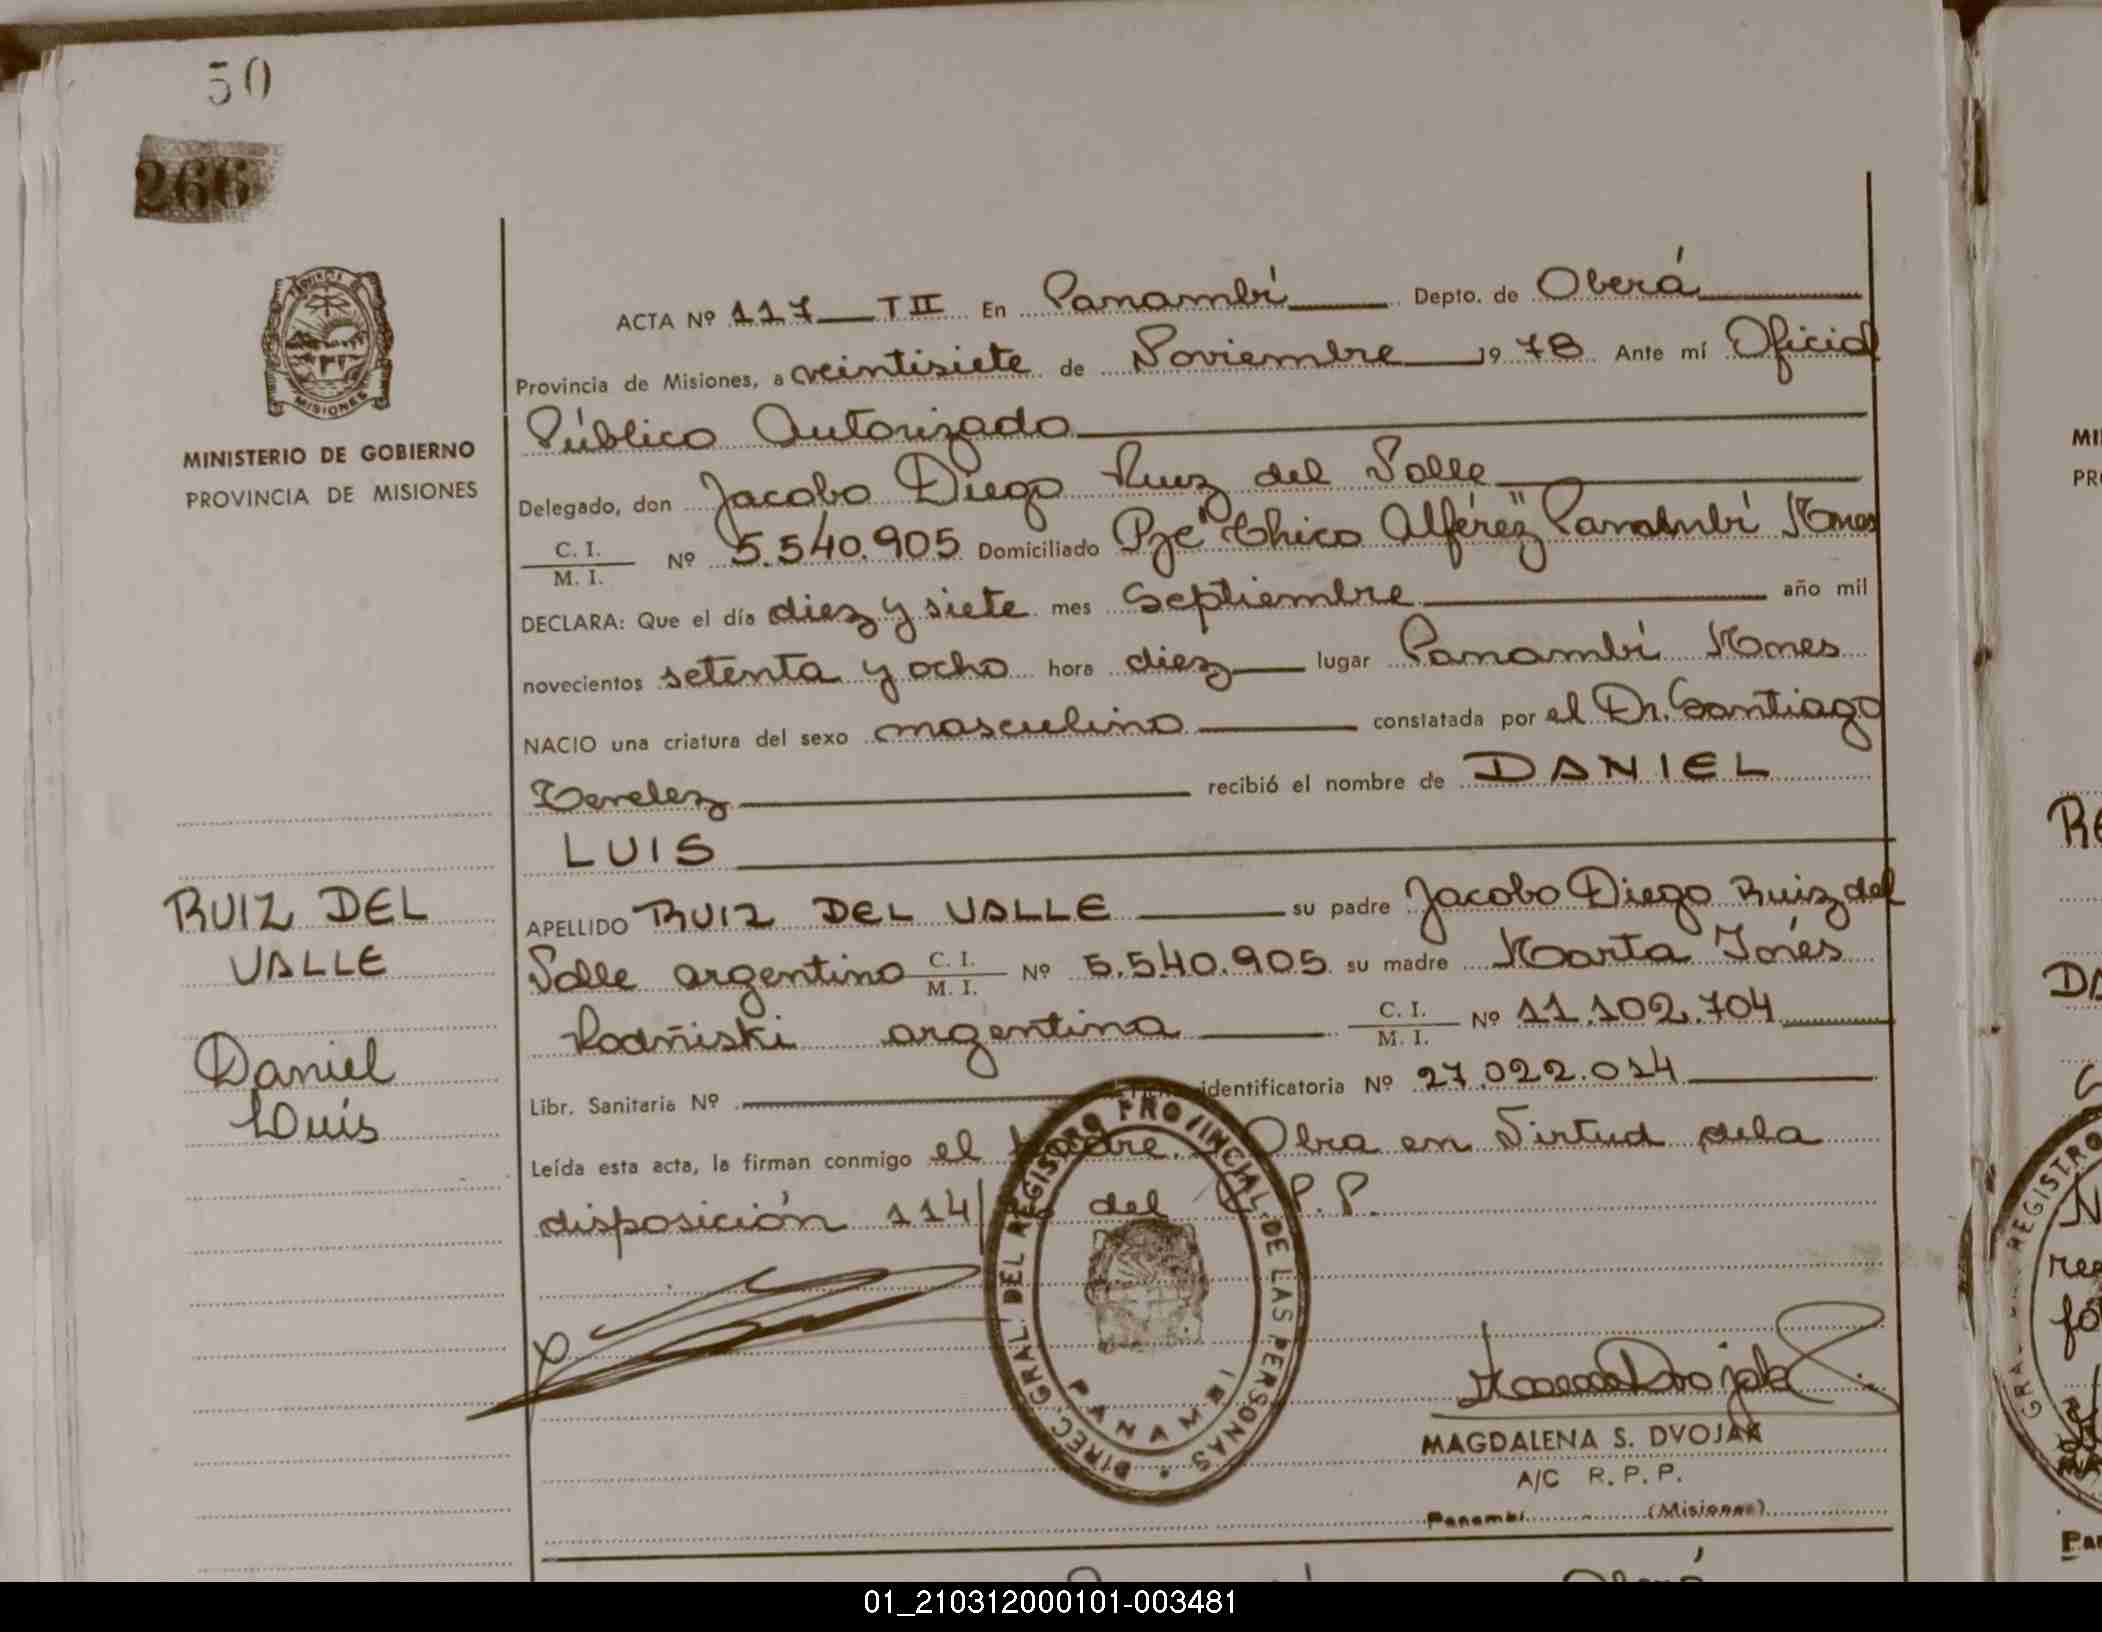 50
266
ACTA Nº 117 TII En Panambí Depto. de Oberá
Provincia de Misiones, a veintisiete de Noviembre 1978 Ante mí Oficial
Público Autorizado
MINISTERIO DE GOBIERNO
PROVINCIA DE MISIONES
Delegado, don Jacobo Diego Ruiz del Valle
C. I.
M. I.
Nº 5.540.905 Domiciliado Pje "Chico Alférez" Panambí Mnes
DECLARA: Que el día diez y siete mes Septiembre año mil
novecientos setenta y ocho hora diez lugar Panambí Mnes
NACIO una criatura del sexo masculino constatada por el Dr. Santiago
recibió el nombre de DANIEL
LUIS
RUIZ DEL
VALLE
Daniel
Luis
APELLIDO RUIZ DEL VALLE su padre Jacobo Diego Ruiz del
Valle argentino C. I. M. I. Nº 5.540.905 su madre Marta Inés
argentina C. I. M. I. Nº 11.102.704
Libr. Sanitaria Nº identificatoria Nº 27.022.014
Leída esta acta, la firman conmigo el Padre. Obra en Virtud dela
disposición 114/ del P.P.
DIREC. GRAL. DEL REGISTRO PROVINCIAL DE LAS PERSONAS
PANAMBI
MAGDALENA S. DVOJAK
A/C R. P. P.
Panambí (Misiones)
01_210312000101-003481